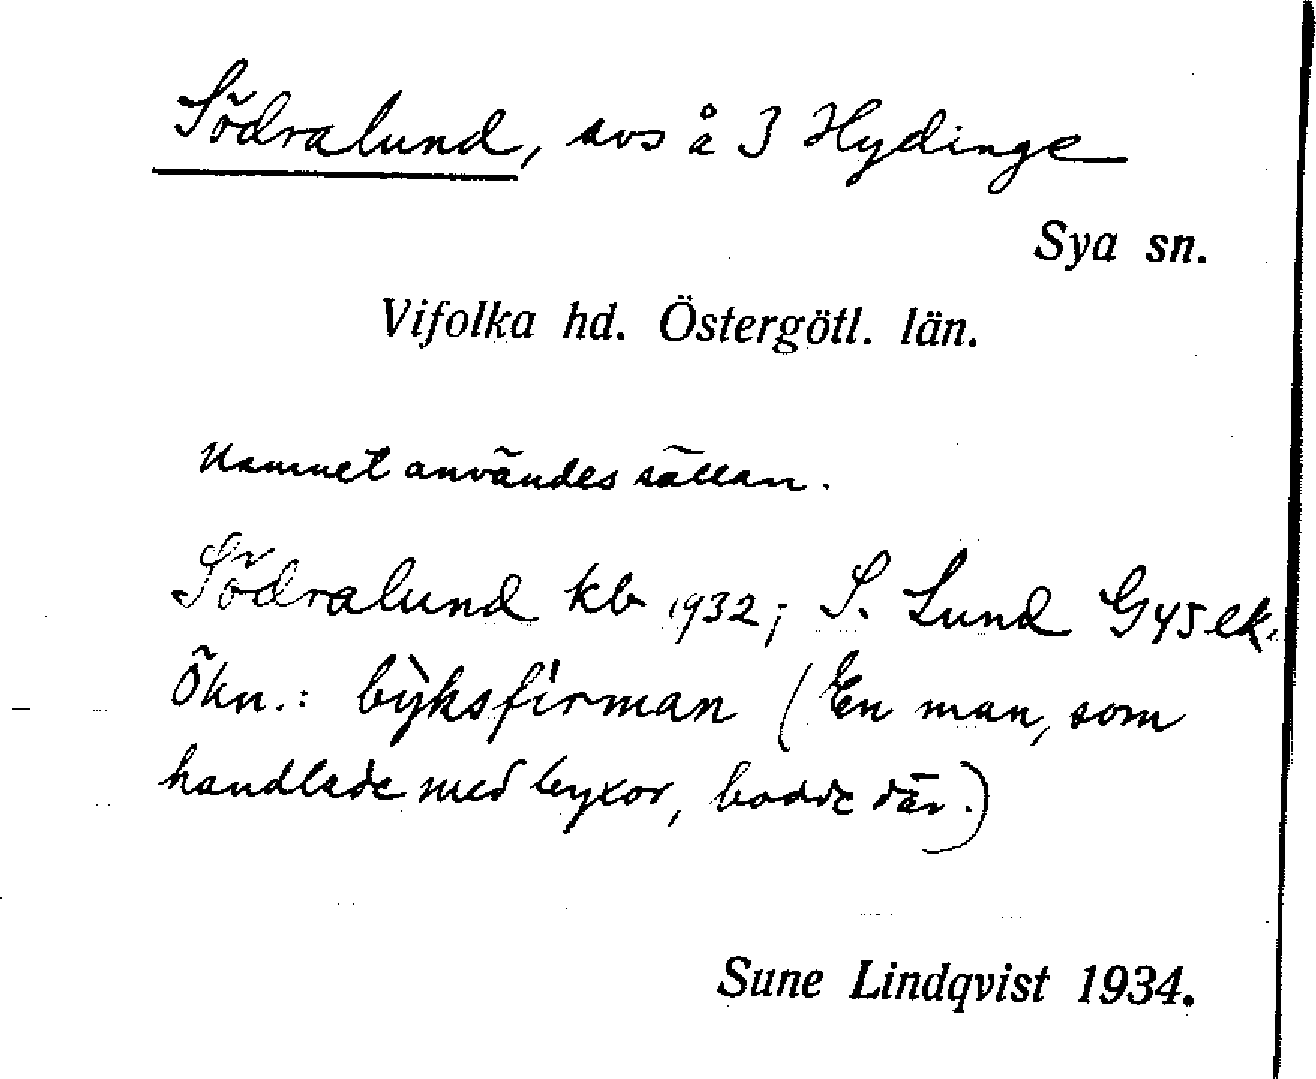 Södralund, avs å 3 Hydinge
Sya sn.
Vifolka hd. Östergötl. län.
Namnet användes sällan.
Södralund kb 1932; S. Lund G45 ek.
Ökn.: by̆ksfirman (En man, som
handlade med byxor, bodde där.)
Sune Lindqvist 1934.